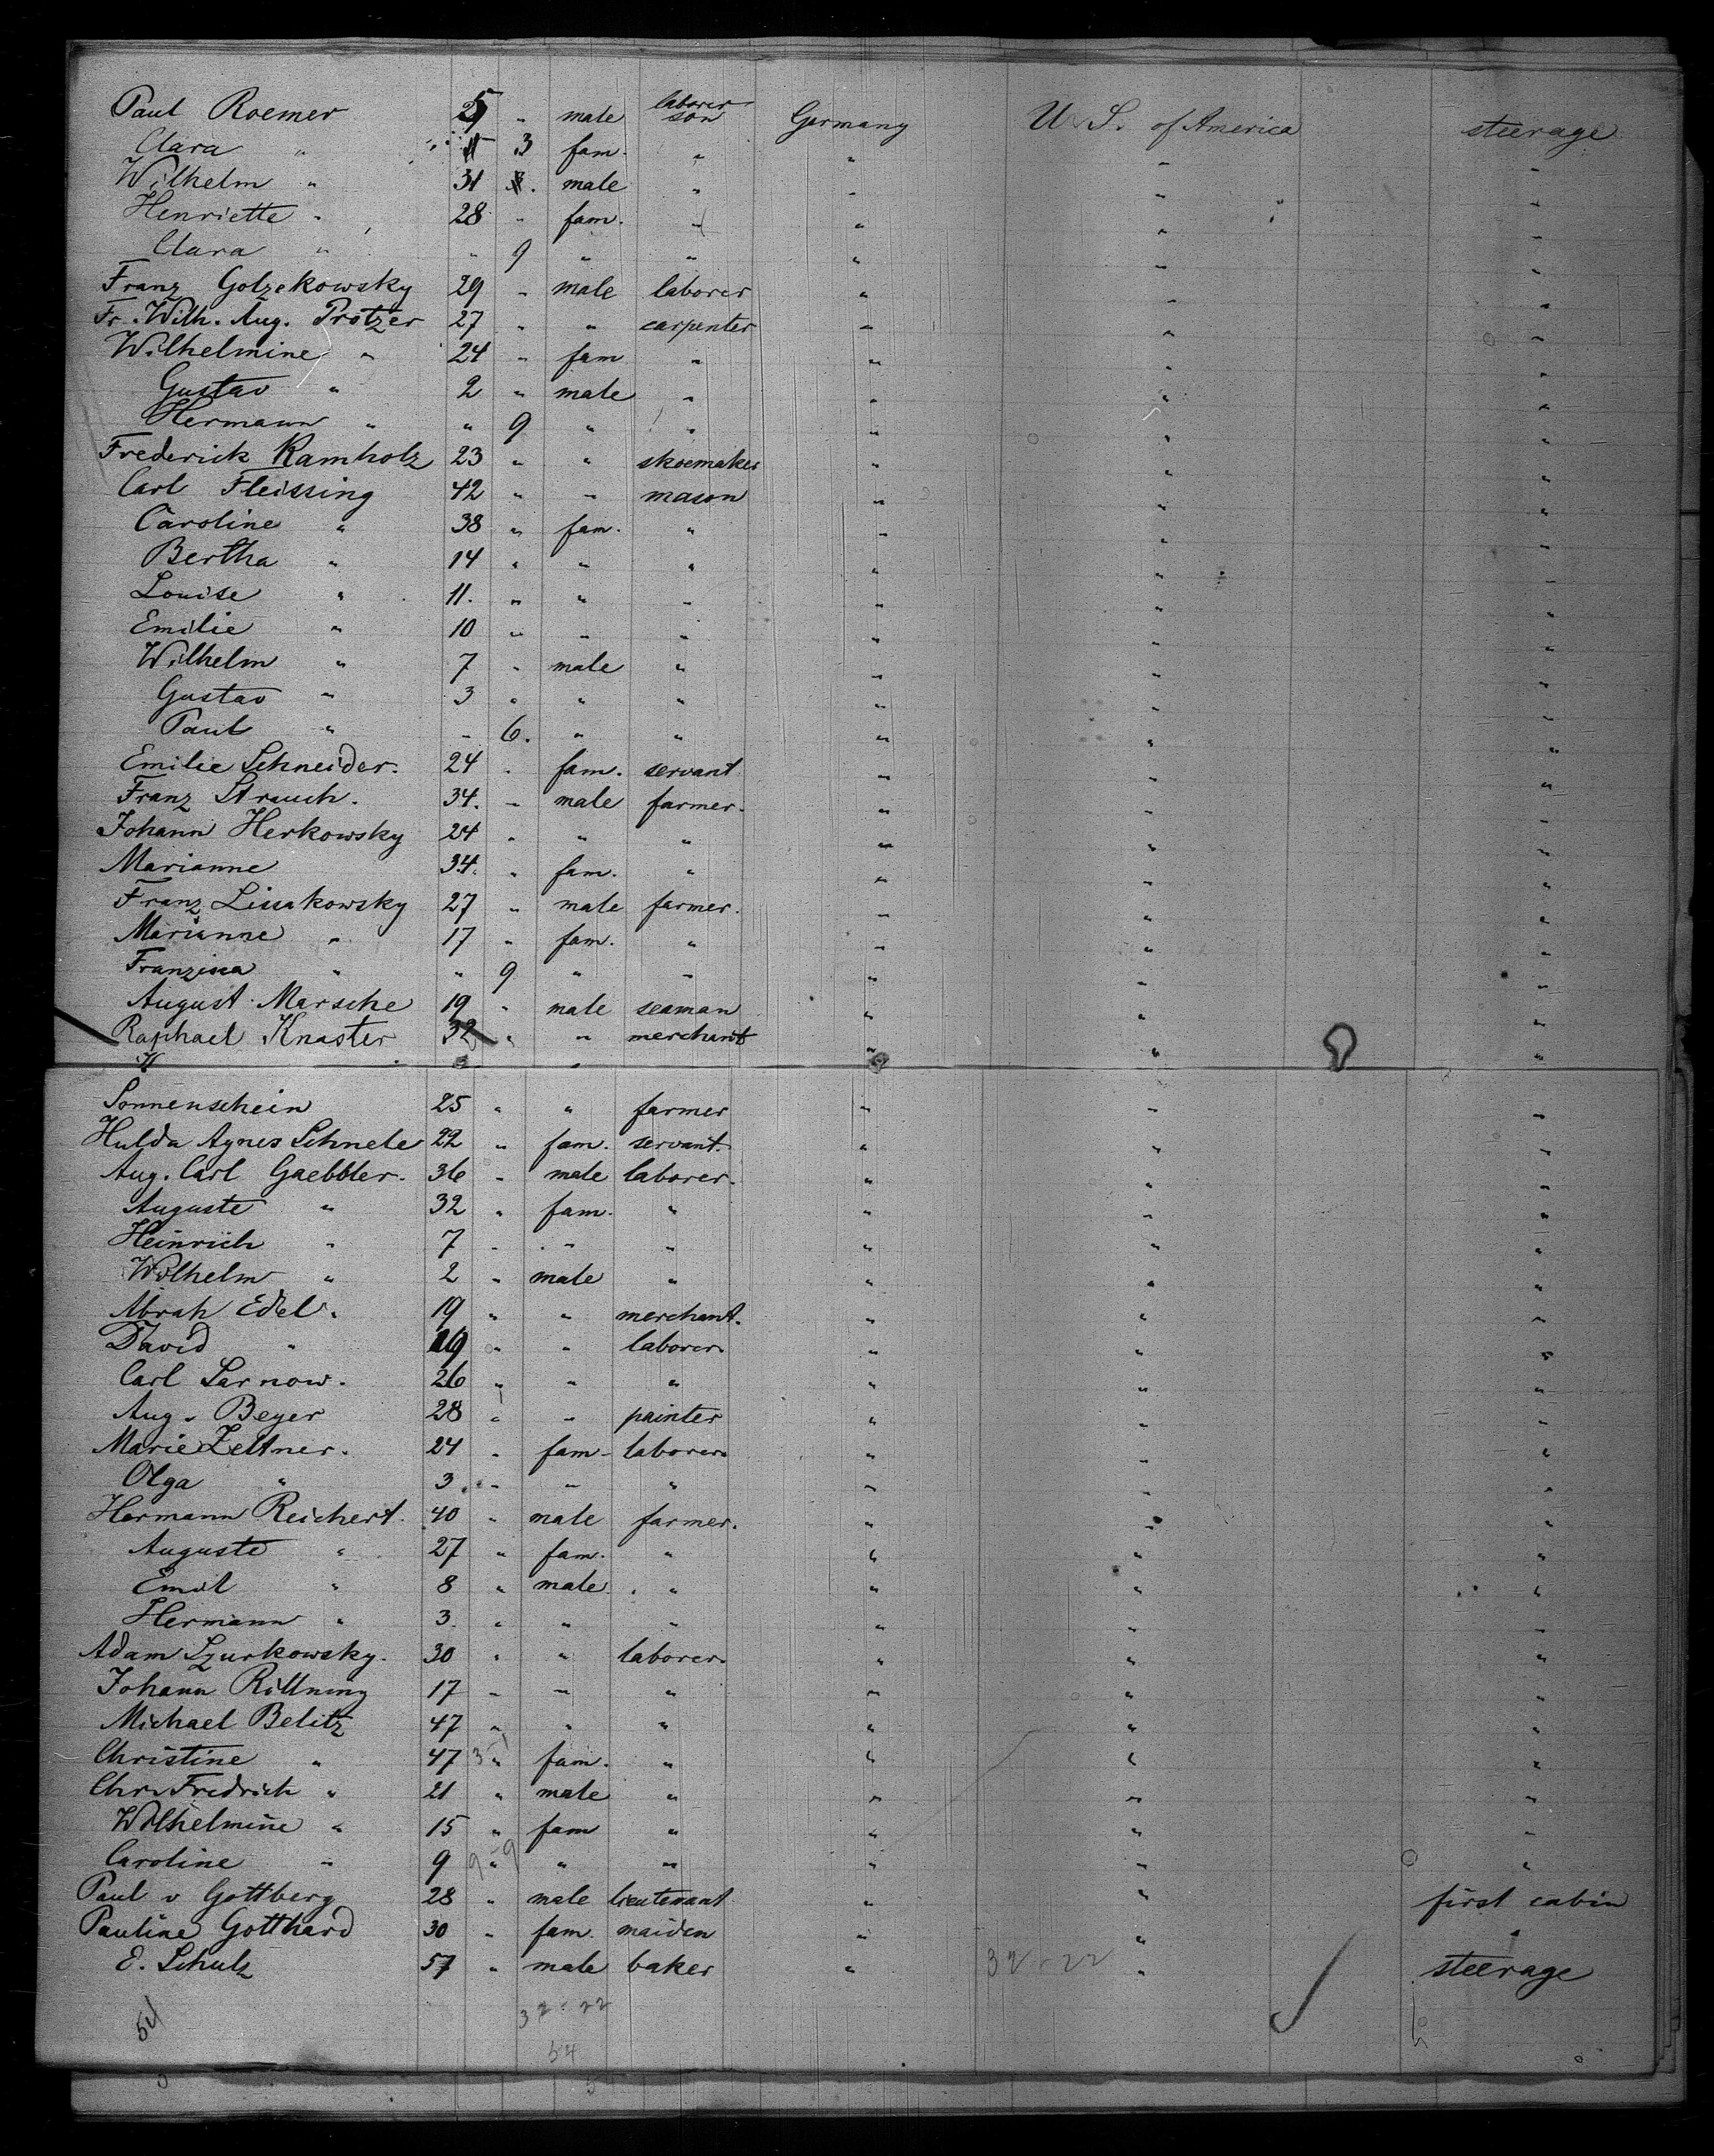 Paul Roemer 5 " male laborer son Germany U. S. of America steerage
Clara " 3 fam. " " " "
Wilhelm " 31 male " " " "
Henriette " 28 " fam. " " " "
Clara " " 9 " " " " "
Franz Golzekowsky 29 " male laborer " " "
Fr. Wilh. Aug. Protzer 27 " " carpenter " " "
Wilhelmine " 24 " fam " " " "
Gustav " 2 " male " " " "
Hermann " " 9 " " " " "
Frederick Ramholz 23 " " shoemaker " " "
Carl Fleissing 42 " " mason " " "
Caroline " 38 " fam. " " " "
Bertha " 14 " " " " " "
Louise " 11. " " " " " "
Emilie " 10 " " " " " "
Wilhelm " 7 " male " " " "
Gustav " 3 " " " " " "
Paul " " 6. " " " " "
Emilie Schneider. 24 " fam. servant " " "
Franz Strauch. 34. " male farmer. " " "
Johann Herkowsky 24 " " " " " "
Marianne 34. " fam. " " " "
Franz Lissakowsky 27 " male farmer. " " "
Marianne " 17 " fam. " " " "
Franzisca " " 9 " " " " "
August Marsche 19 " male seaman " " "
Raphael Knaster 32 " " merchant " " "
Sonnenschein 25 " " farmer " " "
Hulda Agnes Schnele 22 " fam. servant. " " "
Aug. Carl Gaebbler. 36 " male laborer. " " "
Auguste " 32 " fam. " " " "
Heinrich " 7 " " " " " "
Wilhelm " 2 " male " " " "
Abrah Edel. 19 " " merchant. " " "
David " 19 " " laborer. " " "
Carl Sarnow. 26 " " " " " "
Aug. Beyer 28 " " painter " " "
Marie Zettner. 24 " fam. laborer. " " "
Olga " 3 " " " " " "
Hermann Reichert. 40 " male farmer. " " "
Auguste " 27 " fam. " " " "
Emil " 8 " male " " " "
Hermann " 3. " " " " " "
Adam Szurkowsky. 30 " " laborer. " " "
Johann Rittning 17 " " " " " "
Michael Belitz 47 " " " " " "
Christine " 47 " fam. " " " "
Chr. Fredrich " 21 " male " " " "
Wilhelmine " 15 " fam " " " "
Caroline " 9 " " " " " "
Paul v Gottberg 28 " male lieutenant " " first cabin
Pauline Gotthard 30 " fam. maiden " " "
E. Schulz 57 " male baker " 32-22 " steerage
54 32-22
54